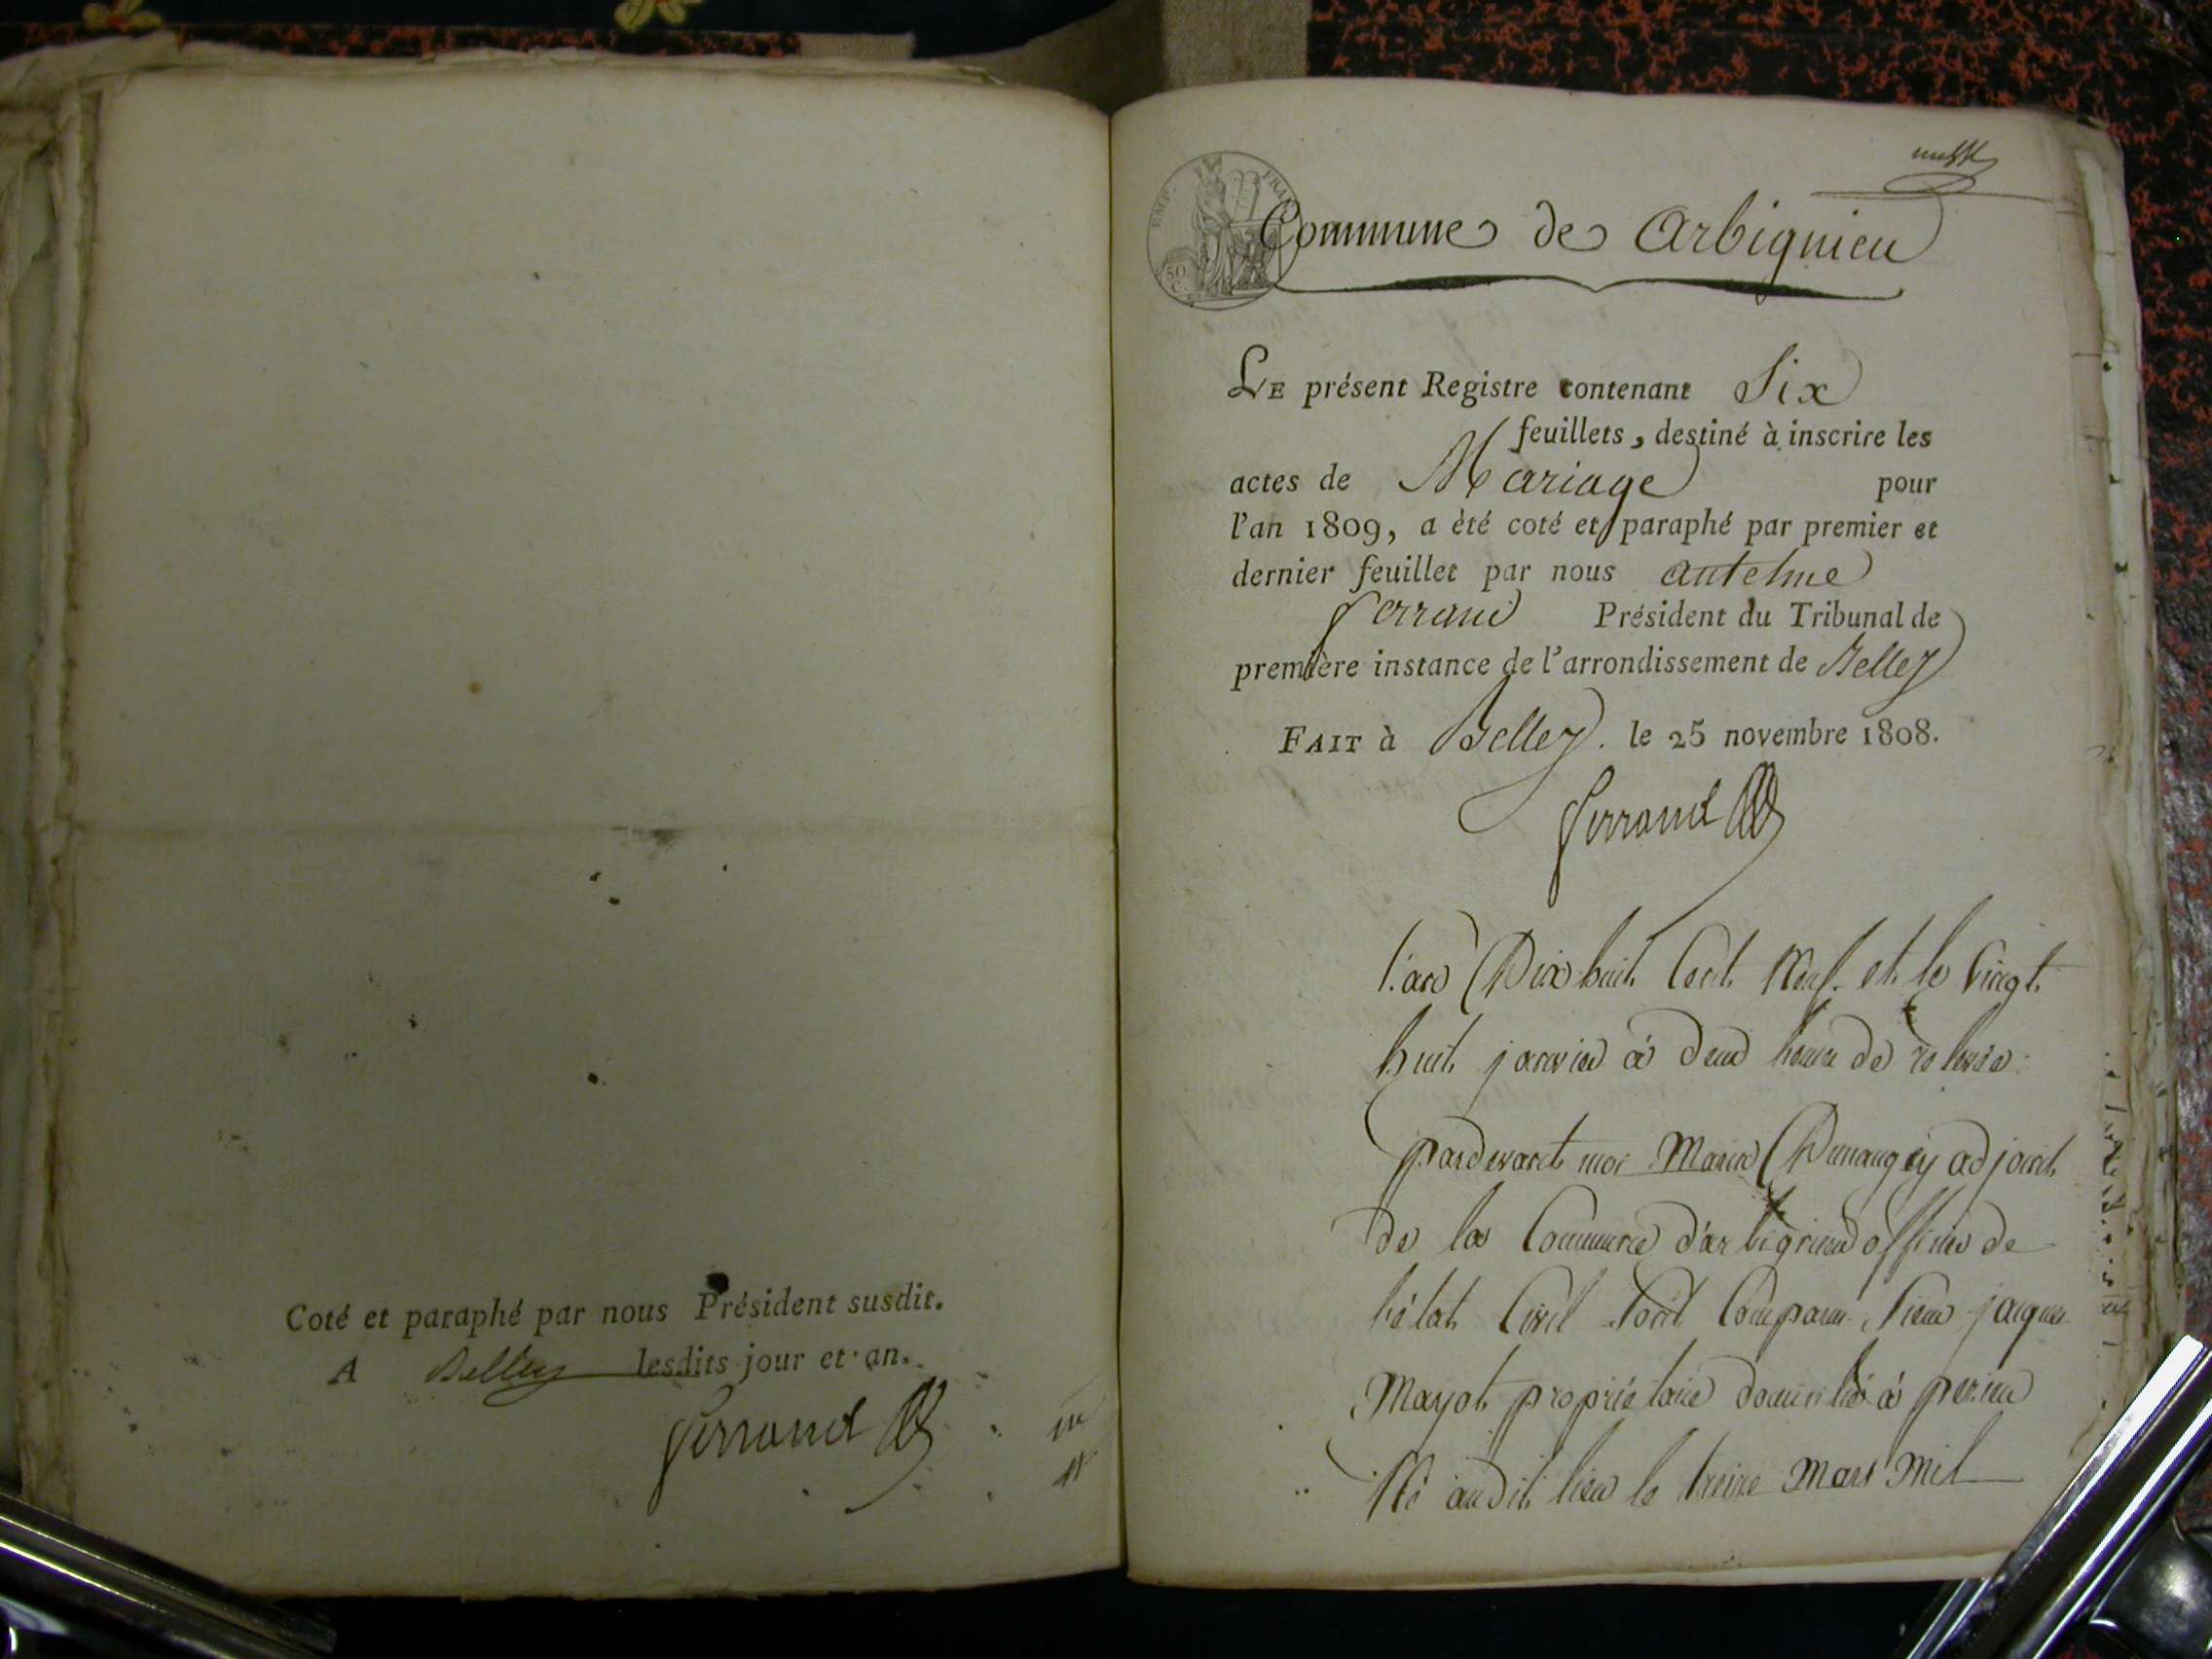 Coté et paraphé par nous Président susdit.
A Belley lesdits jour et an.
Ferrand
EMP. FRAN
50 C.
Commune de Arbignieu
LE présent Registre contenant Six
feuillets, destiné à inscrire les
actes de Mariage pour
l'an 1809, a èté coté et paraphé par premier et
dernier feuillet par nous antelme
ferrand Président du Tribunal de
première instance de l'arrondissement de Belley
FAIT à Belley. le 25 novembre 1808.
Ferrand
l'an Dix huit Cent Neuf. et le vingt
huit janvier à deux heures de relevée
pardevant moi adjoint
de la Commune d'arbignieu officier de
l'état Civil Sont Comparus Sieur jacques
Mayot propriétaire domicilié à peyrieu
Né audit lieu le treize Mars Mil